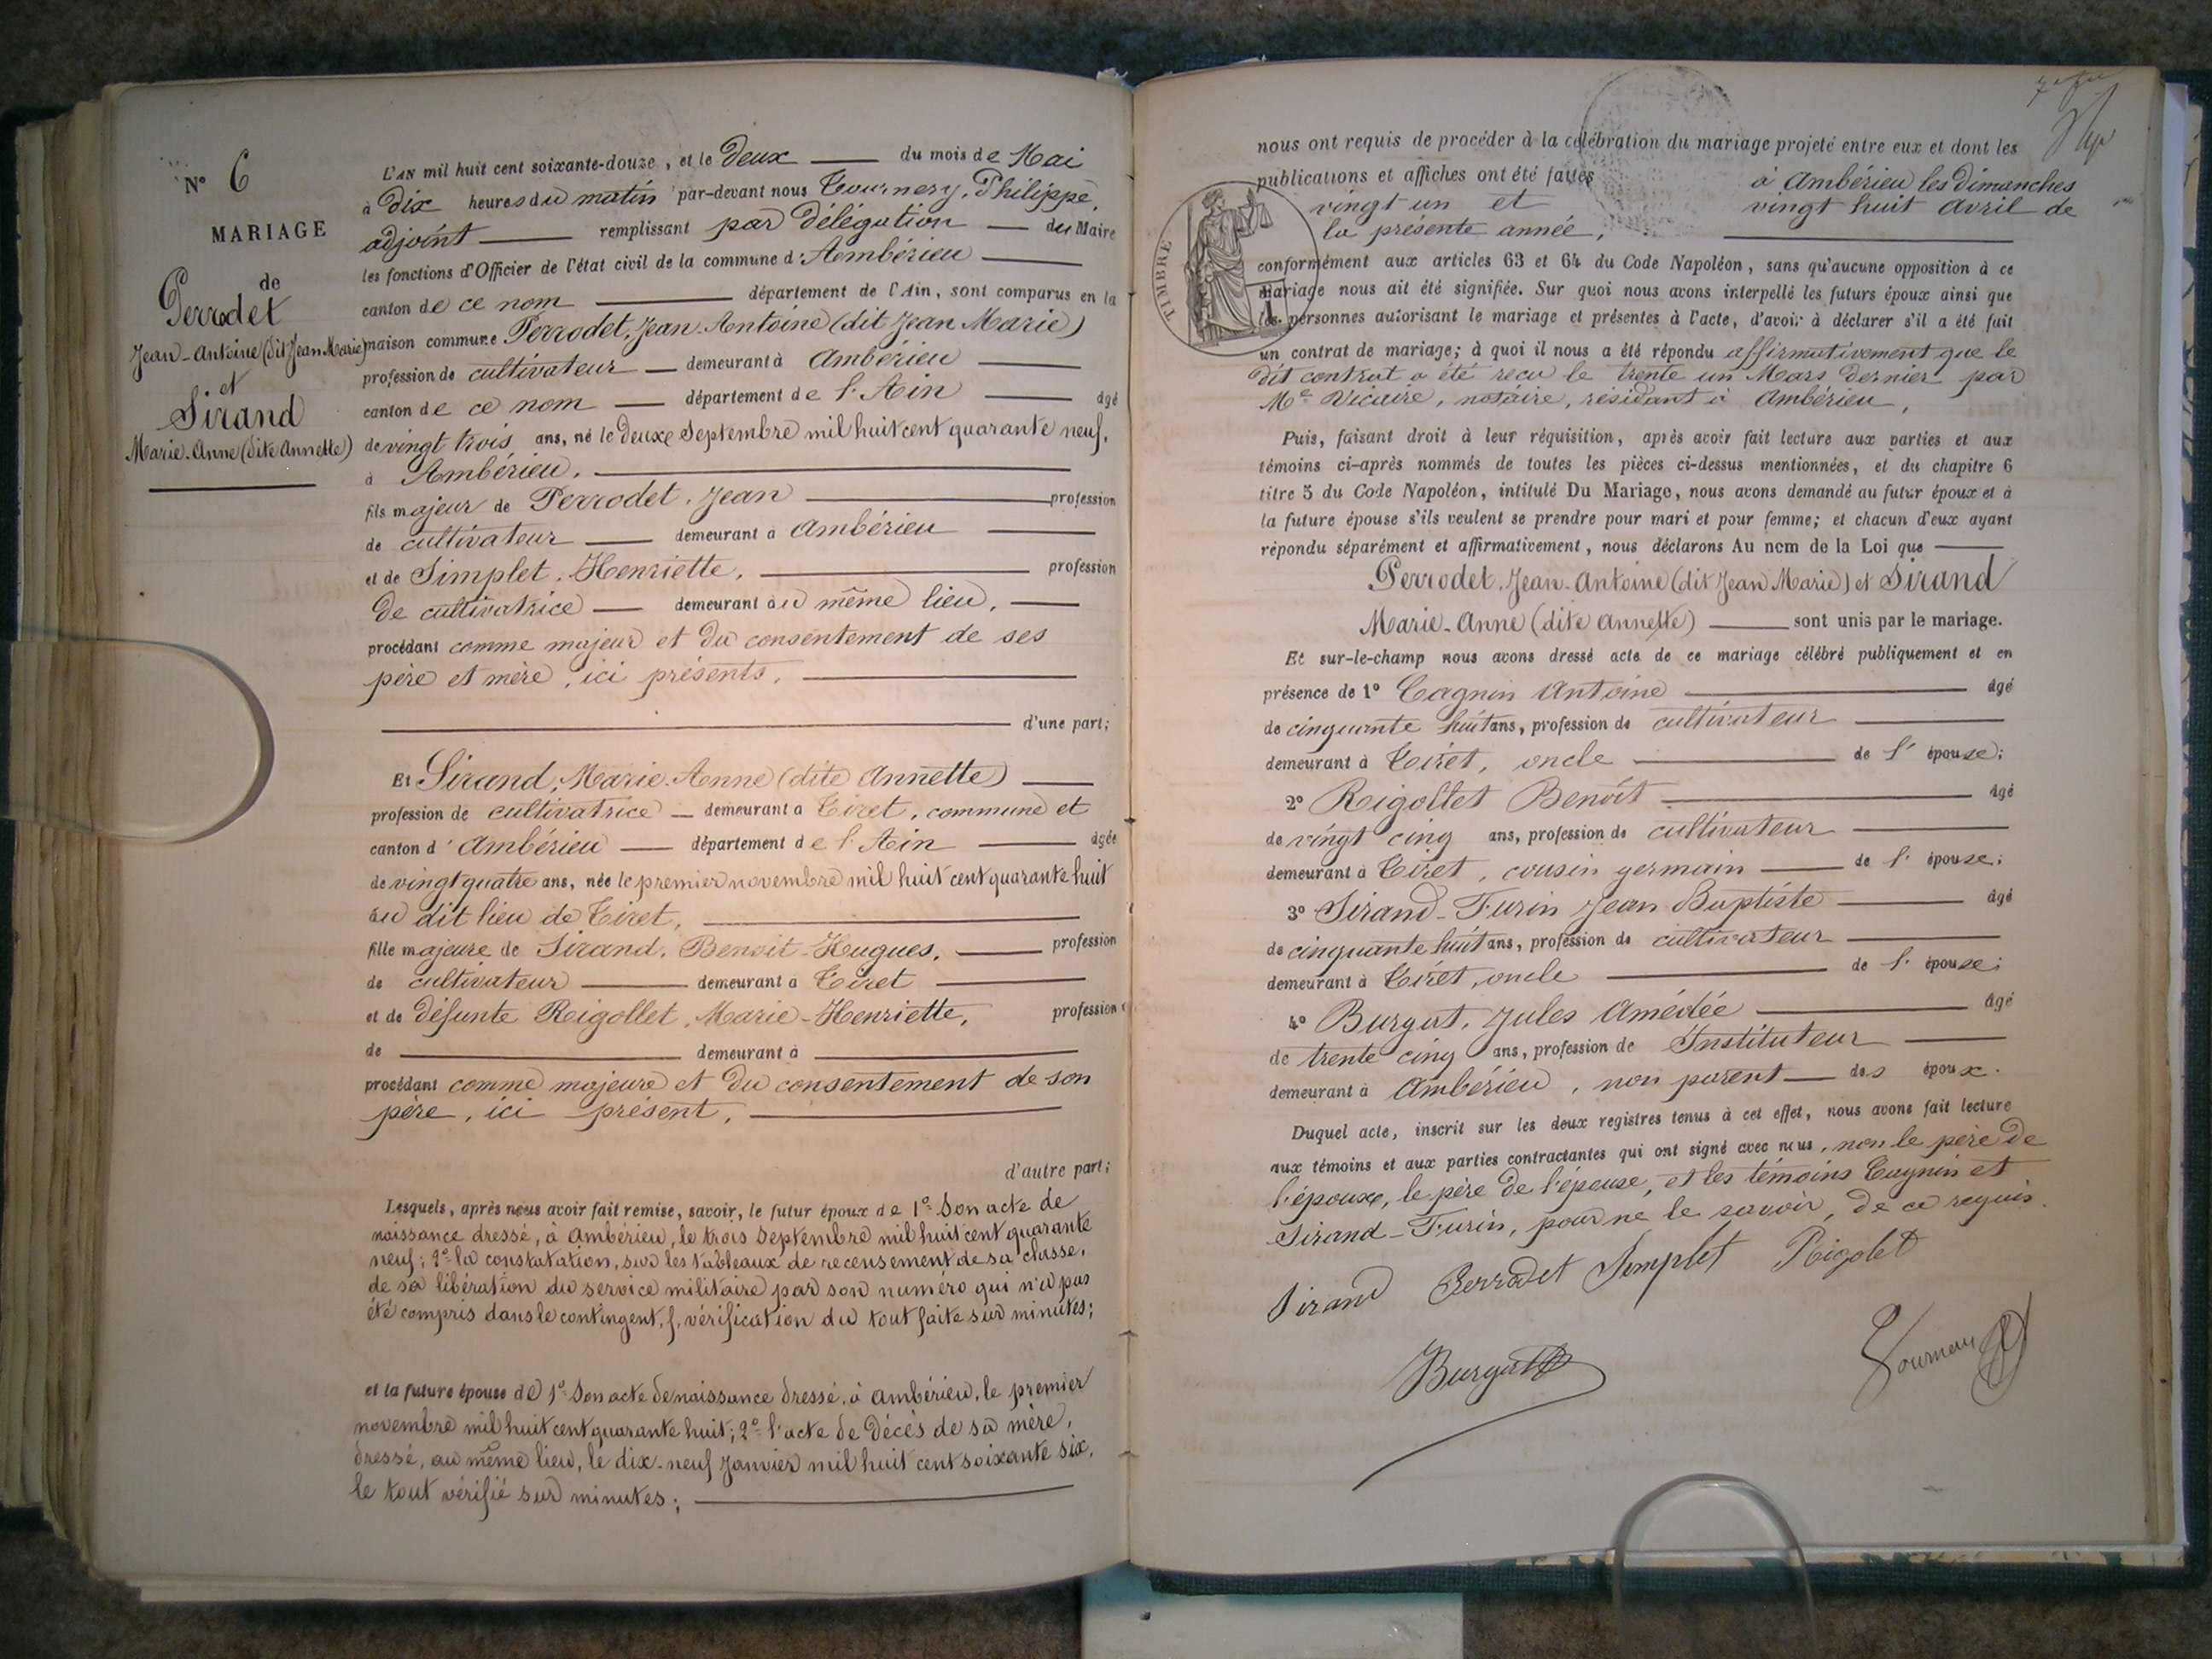 N° 6
MARIAGE
de
Perrodet
Jean-Antoine (dit Jean Marie)
et
Sirand
Marie-Anne (dite Annette)
L'AN mil huit cent soixante-douze, et le deux du mois de Mai
à dix heures du matin par-devant nous Tournery, Philippe,
adjoint remplissant par délégation du Maire
les fonctions d'Officier de l'état civil de la commune d'Ambérieu
canton de ce nom département de l'Ain, sont comparus en la
maison commune Perrodet, Jean-Antoine (dit Jean Marie)
profession de cultivateur demeurant à Ambérieu
canton de ce nom département de l'Ain âgé
de vingt trois ans, né le deuxe Septembre mil huit cent quarante neuf,
à Ambérieu,
fils majeur de Perrodet, Jean profession
de cultivateur demeurant à Ambérieu
et de Simplet, Henriette, profession
de cultivatrice demeurant au même lieu,
procédant comme majeur et du consentement de ses
père et mère, ici présents,
d'une part;
Et Sirand, Marie-Anne (dite Annette)
profession de cultivatrice demeurant à Tiret, commune et
canton d'Ambérieu département de l'Ain âgée
de vingt quatre ans, née le premier novembre mil huit cent quarante huit
au dit lieu de Tiret,
fille majeure de Sirand, Benoit-Hugues, profession
de cultivateur demeurant à Tiret
et de défunte Rigollet, Marie-Henriette, profession
de demeurant à
procédant comme majeure et du consentement de son
père, ici présent,
d'autre part;
Lesquels, après nous avoir fait remise, savoir, le futur époux de 1° Son acte de
naissance dressé, à Ambérieu, le trois Septembre mil huit cent quarante
neuf; 2° la constatation, sur les tableaux de recensement de sa classe,
de sa libération du service militaire par son numéro qui n'a pas
été compris dans le contingent, vérification du tout faite sur minutes;
et la future épouse de 1° Son acte de naissance dressé, à Ambérieu, le premier
novembre mil huit cent quarante huit; 2° l'acte de décès de sa mère,
dressé, au même lieu, le dix-neuf Janvier mil huit cent soixante six,
le tout vérifié sur minutes;
nous ont requis de procéder à la célébration du mariage projeté entre eux et dont les
publications et affiches ont été faites à Ambérieu les Dimanches
vingt un et vingt huit Avril de
la présente année,
TIMBRE
conformément aux articles 63 et 64 du Code Napoléon, sans qu'aucune opposition à ce
mariage nous ait été signifiée. Sur quoi nous avons interpellé les futurs époux ainsi que
les personnes autorisant le mariage et présentes à l'acte, d'avoir à déclarer s'il a été fait
un contrat de mariage; à quoi il nous a été répondu affirmativement que le
dit contrat a été reçu le trente un Mars dernier par
Me Vicaire, notaire, résidant à Ambérieu,
Puis, faisant droit à leur réquisition, après avoir fait lecture aux parties et aux
témoins ci-après nommés de toutes les pièces ci-dessus mentionnées, et du chapitre 6
titre 5 du Code Napoléon, intitulé Du Mariage, nous avons demandé au futur époux et à
la future épouse s'ils veulent se prendre pour mari et pour femme; et chacun d'eux ayant
répondu séparément et affirmativement, nous déclarons Au nom de la Loi que
Perrodet, Jean-Antoine (dit Jean Marie) et Sirand
Marie-Anne (dite Annette) sont unis par le mariage.
Et sur-le-champ nous avons dressé acte de ce mariage célébré publiquement et en
présence de 1° Cagnin Antoine âgé
de cinquante huit ans, profession de cultivateur
demeurant à Tiret, oncle de l'épouse;
2° Rigollet Benoît âgé
de vingt cinq ans, profession de cultivateur
demeurant à Tiret, cousin germain de l'épouse;
3° Sirand-Furin Jean Baptiste âgé
de cinquante huit ans, profession de cultivateur
demeurant à Tiret, oncle de l'épouse;
4° Burgat, Jules Amédée âgé
de trente cinq ans, profession de Instituteur
demeurant à Ambérieu, non parent des époux.
Duquel acte, inscrit sur les deux registres tenus à cet effet, nous avons fait lecture
aux témoins et aux parties contractantes qui ont signé avec nous, non le père de
l'épouxe, le père de l'épouse, et les témoins Cagnin et
Sirand-Furin, pour ne le savoir, de ce requis.
Sirand Perrodet Simplet Rigolet
Burgat